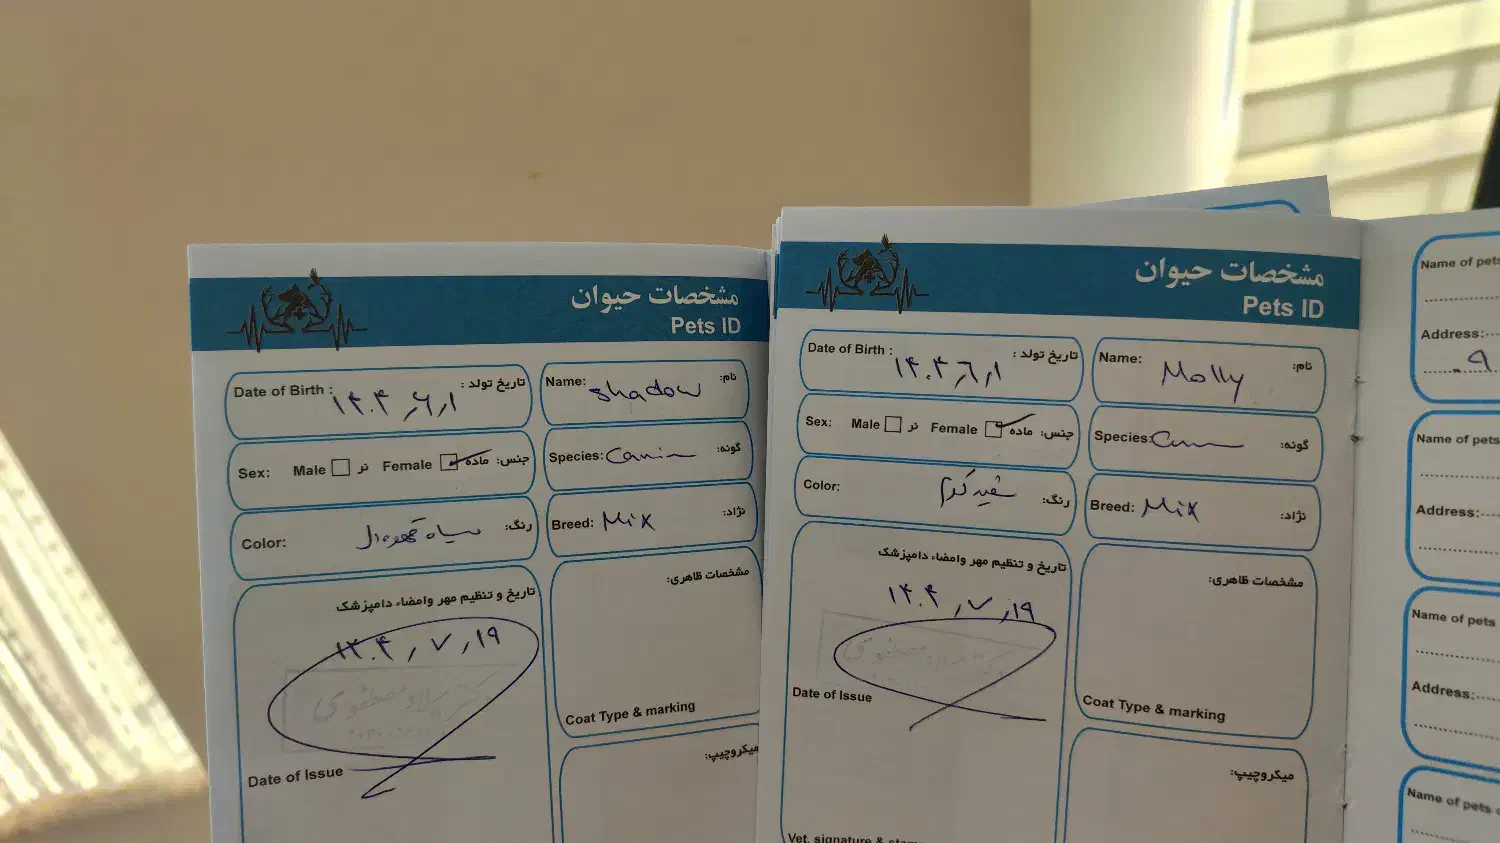 مشخصات حیوان
Pets ID
Date of Birth : ۱۴۰۴٫۶٫۱ تاریخ تولد :
Name: Shadow نام:
Sex: Male نر Female ماده جنس:
Species: Canin گونه:
Color: سیاه قهوه‌ای رنگ:
Breed: Mix نژاد:
تاریخ و تنظیم مهر وامضاء دامپزشک
۱۴۰۴٫۷٫۱۹
دکتر میلاد مصطفوی
Date of Issue
مشخصات ظاهری:
Coat Type & marking
میکروچیپ:
مشخصات حیوان
Pets ID
Date of Birth : ۱۴۰۴٫۶٫۱ تاریخ تولد :
Name: Molly نام:
Sex: Male نر Female ماده جنس:
Species: گونه:
Color: سفید کرم رنگ:
Breed: Mix نژاد:
تاریخ و تنظیم مهر وامضاء دامپزشک
۱۴۰۴٫۷٫۱۹
دکتر میلاد مصطفوی
Date of Issue
Vet. signature &
مشخصات ظاهری:
Coat Type & marking
میکروچیپ:
Name of pets
Address:
Name of pets
Address:
Name of pets
Address:
Name of pets